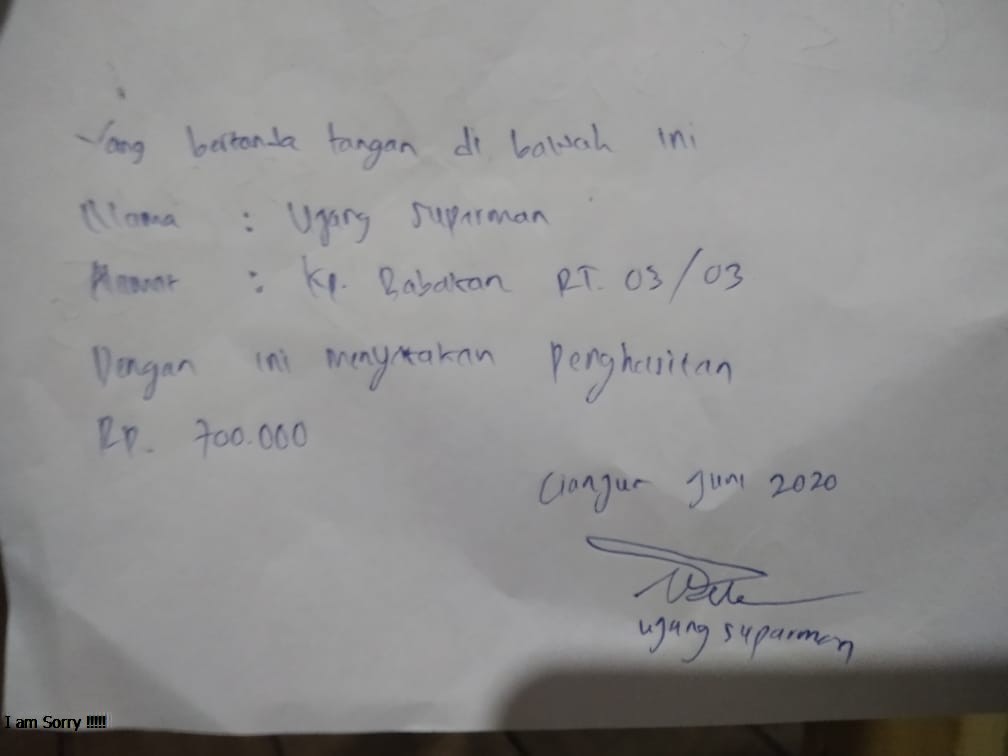 Yang bertanda tangan di bawah ini
Nama : Ujang Suparman
Alamat : Kp. Babakan RT. 03/03
Dengan ini menyatakan Penghasilan
Rp. 700.000
Cianjur Juni 2020
ujang suparman
I am Sorry !!!!!